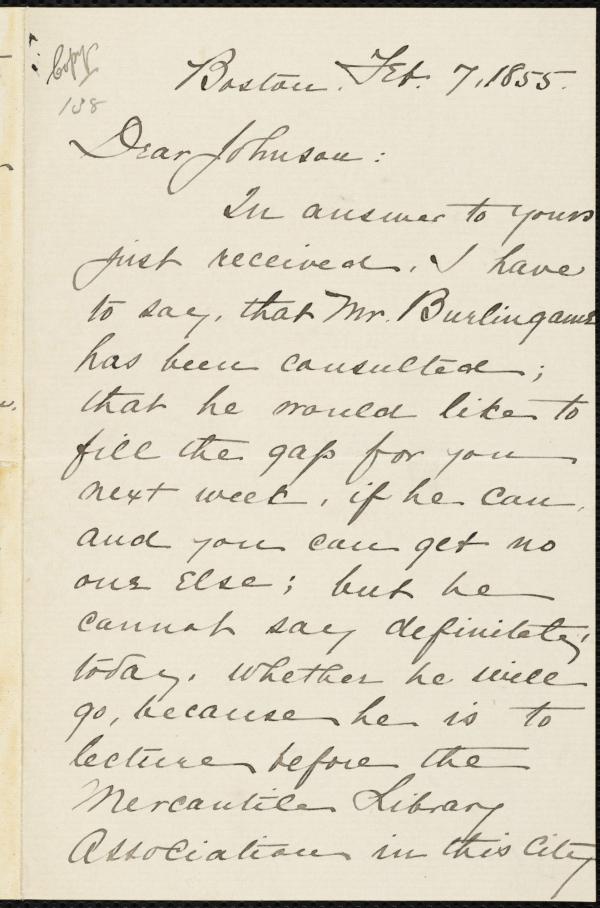 Copy
138
Boston, Feb. 7, 1855.
Dear Johnson:
In answer to yours
just received, I have
to say, that Mr. Burlingame
has been consulted;
that he would like to
fill the gap for you
next week, if he can,
and you can get no
one else; but he
cannot say definitely,
today, whether he will
go, because he is to
lecture before the
Mercantile Library
Association in this City